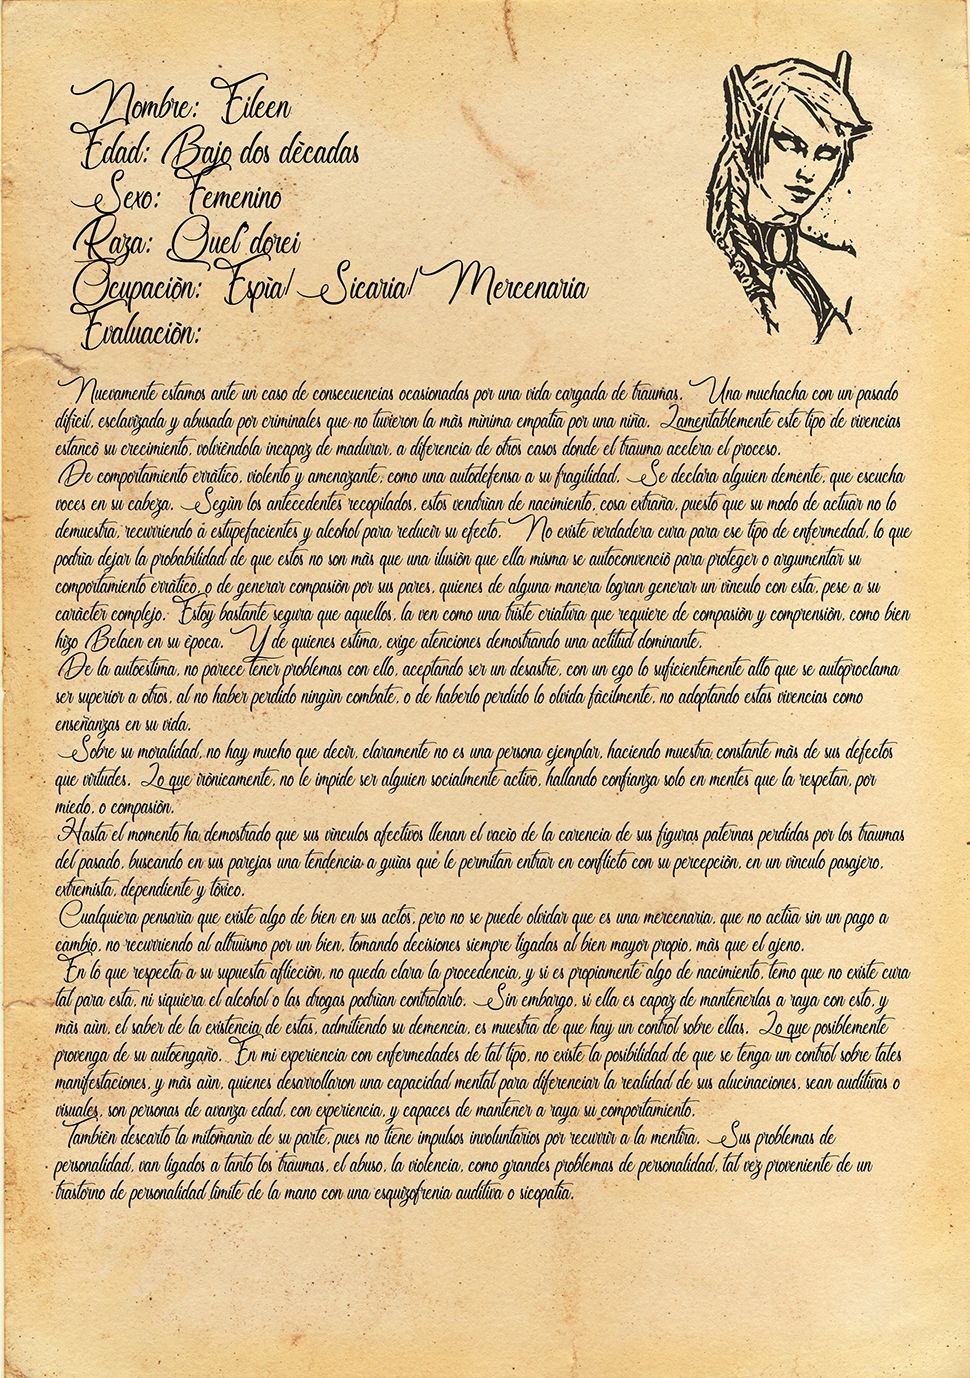 Nombre: Eileen
Edad: Bajo dos dècadas
Sexo: Femenino
Raza: Quel'dorei
Ocupaciòn: Espìa/ Sicaria/ Mercenaria
Evaluaciòn:
Nuevamente estamos ante un caso de consecuencias ocasionadas por una vida cargada de traumas. Una muchacha con un pasado
difìcil, esclavizada y abusada por criminales que no tuvieron la màs mìnima empatìa por una niña. Lamentablemente este tipo de vivencias
estancò su crecimiento, volvièndola incapaz de madurar, a diferencia de otros casos donde el trauma acelera el proceso.
De comportamiento erràtico, violento y amenazante, como una autodefensa a su fragilidad. Se declara alguien demente, que escucha
voces en su cabeza. Segùn los antecedentes recopilados, estos vendrìan de nacimiento, cosa extraña, puesto que su modo de actuar no lo
demuestra, recurriendo à estupefacientes y alcohol para reducir su efecto. No existe verdadera cura para ese tipo de enfermedad, lo que
podrìa dejar la probabilidad de que estos no son màs que una ilusiòn que ella misma se autoconvenciò para proteger o argumentar su
comportamiento erràtico, o de generar compasiòn por sus pares, quienes de alguna manera logran generar un vìnculo con esta, pese a su
caràcter complejo. Estoy bastante segura que aquellos, la ven como una triste criatura que requiere de compasiòn y comprensiòn, como bien
hizo Belaen en su època. Y de quienes estima, exige atenciones demostrando una actitud dominante.
De la autoestima, no parece tener problemas con ello, aceptando ser un desastre, con un ego lo suficientemente alto que se autoproclama
ser superior a otros, al no haber perdido ningùn combate, o de haberlo perdido lo olvida fàcilmente, no adoptando estas vivencias como
enseñanzas en su vida.
Sobre su moralidad, no hay mucho que decir, claramente no es una persona ejemplar, haciendo muestra constante màs de sus defectos
que virtudes. Lo que irònicamente, no le impide ser alguien socialmente activo, hallando confianza solo en mentes que la respetan, por
miedo, o compasiòn.
Hasta el momento ha demostrado que sus vìnculos afectivos llenan el vacìo de la carencia de sus figuras paternas perdidas por los traumas
del pasado, buscando en sus parejas una tendencia a guìas que le permitan entrar en conflicto con su percepciòn, en un vìnculo pasajero,
extremista, dependiente y tòxico.
Cualquiera pensarìa que existe algo de bien en sus actos, pero no se puede olvidar que es una mercenaria, que no actùa sin un pago a
cambio, no recurriendo al altruismo por un bien, tomando decisiones siempre ligadas al bien mayor propio, màs que el ajeno.
En lo que respecta a su supuesta aflicciòn, no queda clara la procedencia, y si es propiamente algo de nacimiento, temo que no existe cura
tal para esta, ni siquiera el alcohol o las drogas podrìan controlarlo. Sin embargo, si ella es capaz de mantenerlas a raya con esto, y
màs aùn, el saber de la existencia de estas, admitiendo su demencia, es muestra de que hay un control sobre ellas. Lo que posiblemente
provenga de su autoengaño. En mi experiencia con enfermedades de tal tipo, no existe la posibilidad de que se tenga un control sobre tales
manifestaciones, y màs aùn, quienes desarrollaron una capacidad mental para diferenciar la realidad de sus alucinaciones, sean auditivas o
visuales, son personas de avanza edad, con experiencia, y capaces de mantener a raya su comportamiento.
Tambièn descarto la mitomanìa de su parte, pues no tiene impulsos involuntarios por recurrir a la mentira. Sus problemas de
personalidad, van ligados a tanto los traumas, el abuso, la violencia, como grandes problemas de personalidad, tal vez proveniente de un
trastorno de personalidad lìmite de la mano con una esquizofrenia auditiva o sicopatìa.